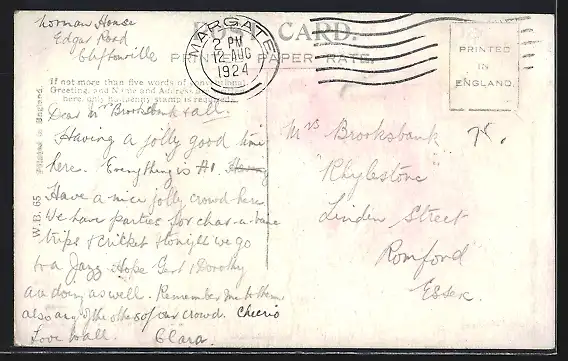 Norman House
Edgar Road
Cliftonville
POST CARD.
PRINTED PAPER RATE.
MARGATE
2 PM
12 AUG
1924
PRINTED
IN
ENGLAND.
If not more than five words of conventional
Greeting, and Name and Address are
here, only Halfpenny stamp is required.
Printed in England.
W.B. 65
Dear Mrs Brooksbank & all.
Having a jolly good time
here. Everything is A1.
Have a nice jolly crowd here
We have parties for char-a-banc
trips & cricket & tonight we go
to a Jazz Hope Gert & Dorothy
are doing as well. Remember me to them
also any of the others of our crowd. Cheerio
Love to all. Clara.
Mrs Brooksbank
"Rhylestone"
Linden Street
Romford
Essex.